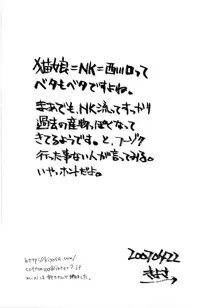 猫娘=NK=西川口って
ベタもベタですよね。
まぁでも、NK流ってすっかり
過去の産物っぽくなって
きてるようです。と、フーゾク
行った事ない人が言ってみる。
いや、ホントだよ。
20070422
きよす